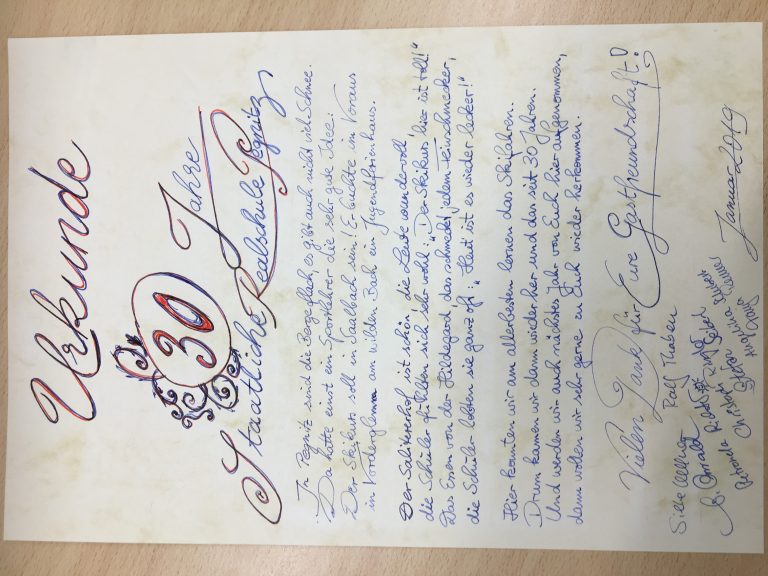 Urkunde
30 Jahre
Staatliche Realschule Pegnitz
In Pegnitz sind die Berge flach, es gibt auch nicht viel Schnee.
Da hatte einst ein Sportlehrer die sehr gute Idee:
Der Skikurs soll in Saalbach sein! Er buchte im Voraus
in Vorderglemm am wilden Bach ein Jugendferienhaus.
Der Salitererhof ist schön, die Leute wundervoll
die Schüler fühlten sich sehr wohl: "Der Skikurs hier ist toll!"
Das Essen von der Hildegard, das schmeckt jedem Feinschmecker,
die Schüler loben sie ganz oft: "Heut ist es wieder lecker!"
Hier konnten wir am allerbesten lernen das Skifahren.
Drum kamen wir dann wieder her und das seit 30 Jahren.
Und werden wir auch nächstes Jahr von Euch hier aufgenommen,
dann wollen wir sehr gerne zu Euch wieder herkommen.
Vielen Dank für Eure Gastfreundschaft!
Ralf Thaben
Januar 2019